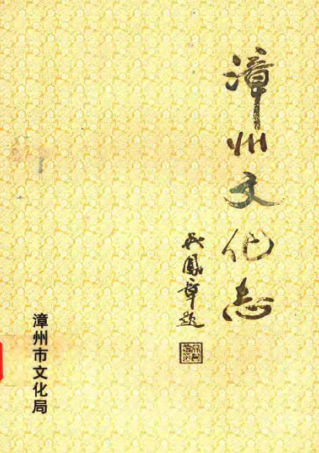 漳州文化志
鳳章題
漳州市文化局